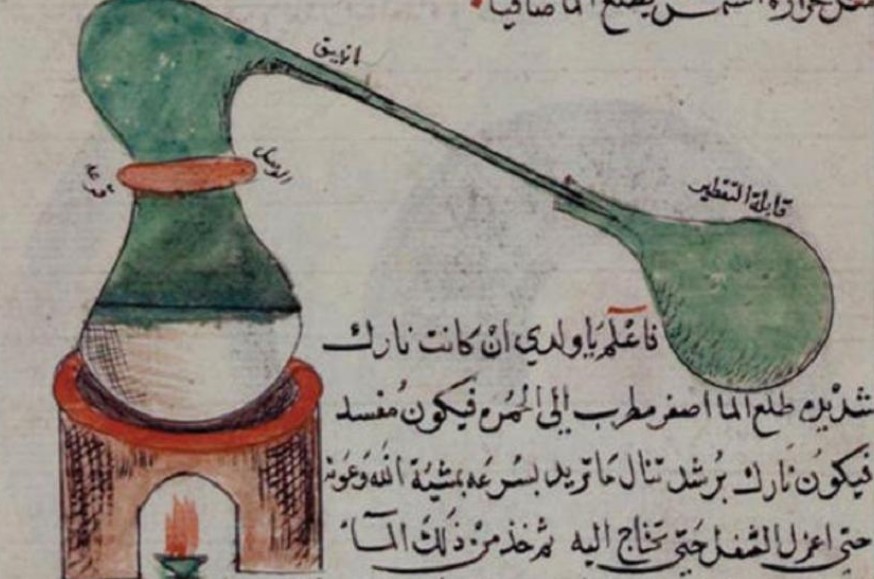 حرارة الشمس يطلع الما صافيا
انبيق
الوصل
قرعة
قابلة التقطير
فاعْلَمْ يَا ولدي انْ كانت نارك
شديده طلع الما اصفر مطرب الى الحُمره فيكونُ مُفسد
فيكونُ نارك برُشد تنال مَا تريد بسُرعه بمشيّة الله وَعونه
حتى اعزل الثفل حَتى تحتاج اليه ثم خذ منْ ذلكَ المآء